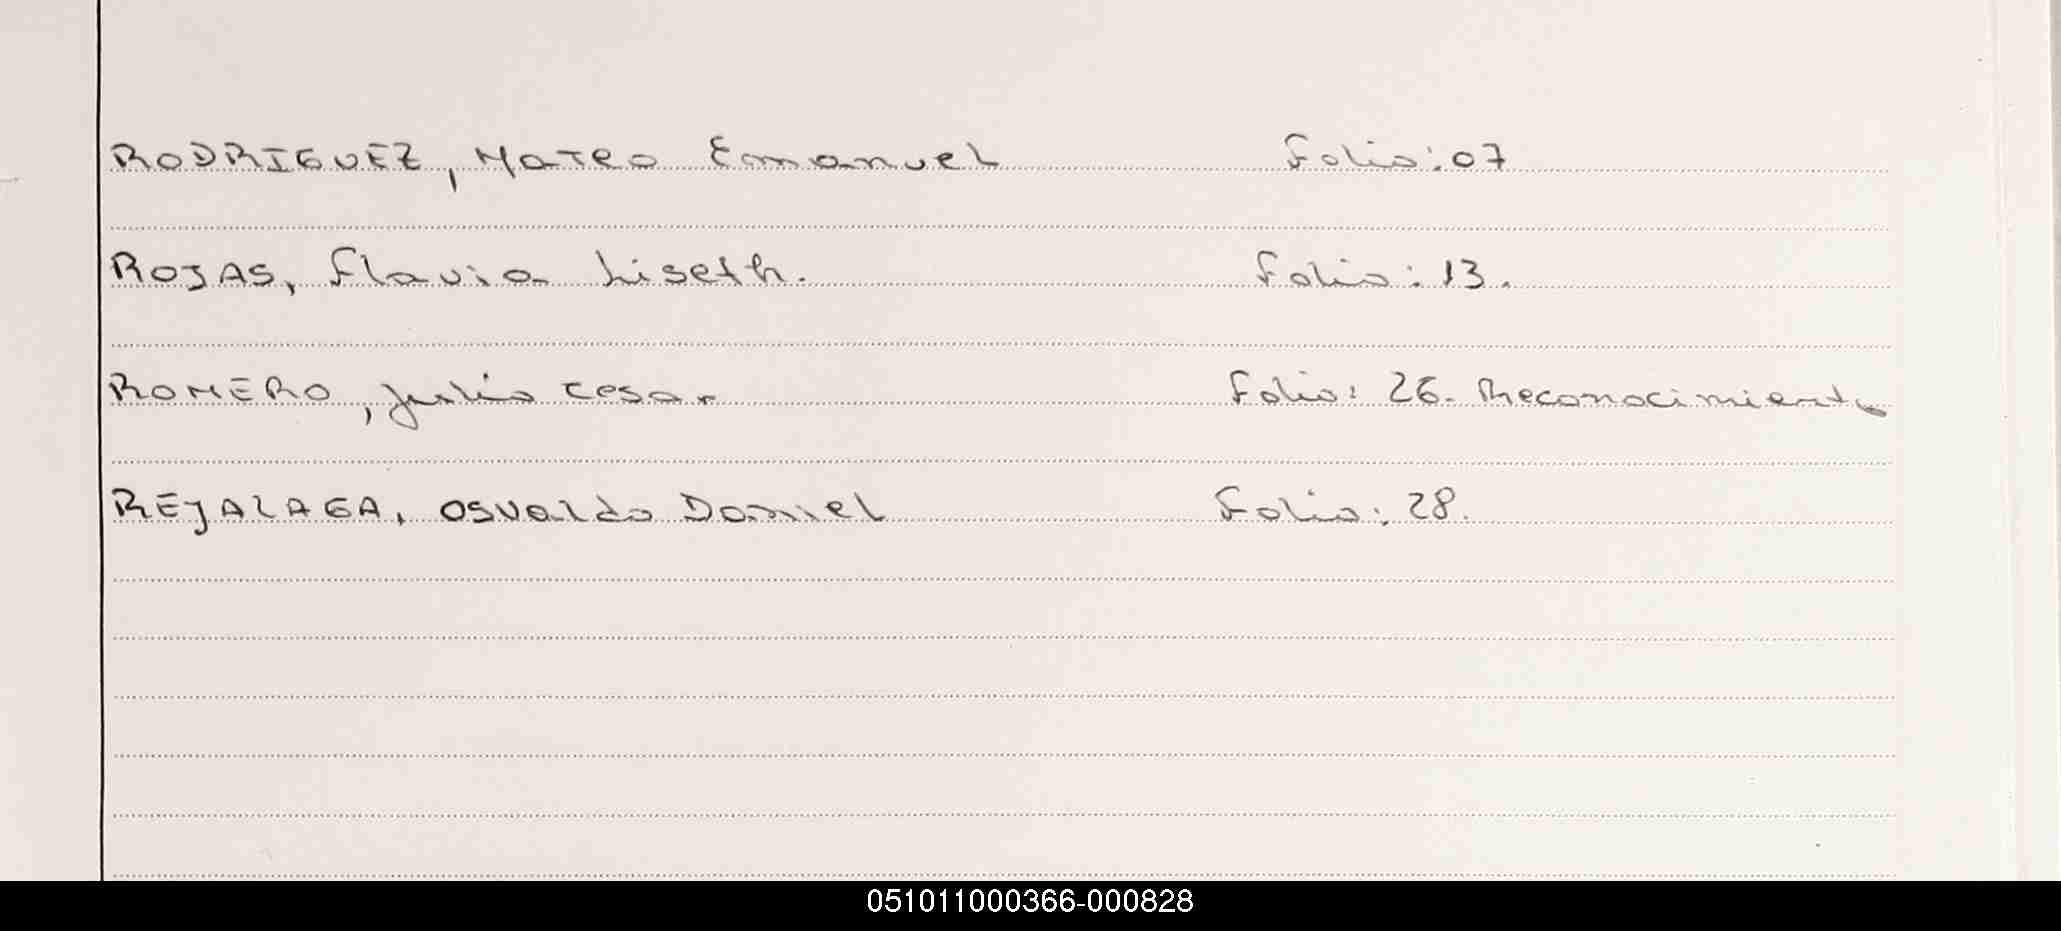 RODRIGUEZ, Mateo Emanuel Folio: 07
ROJAS, Flavia Liseth. Folio: 13.
ROMERO, Julio Cesar Folio: 26. Reconocimiento
REJALAGA, Osvaldo Daniel Folio: 28.
051011000366-000828